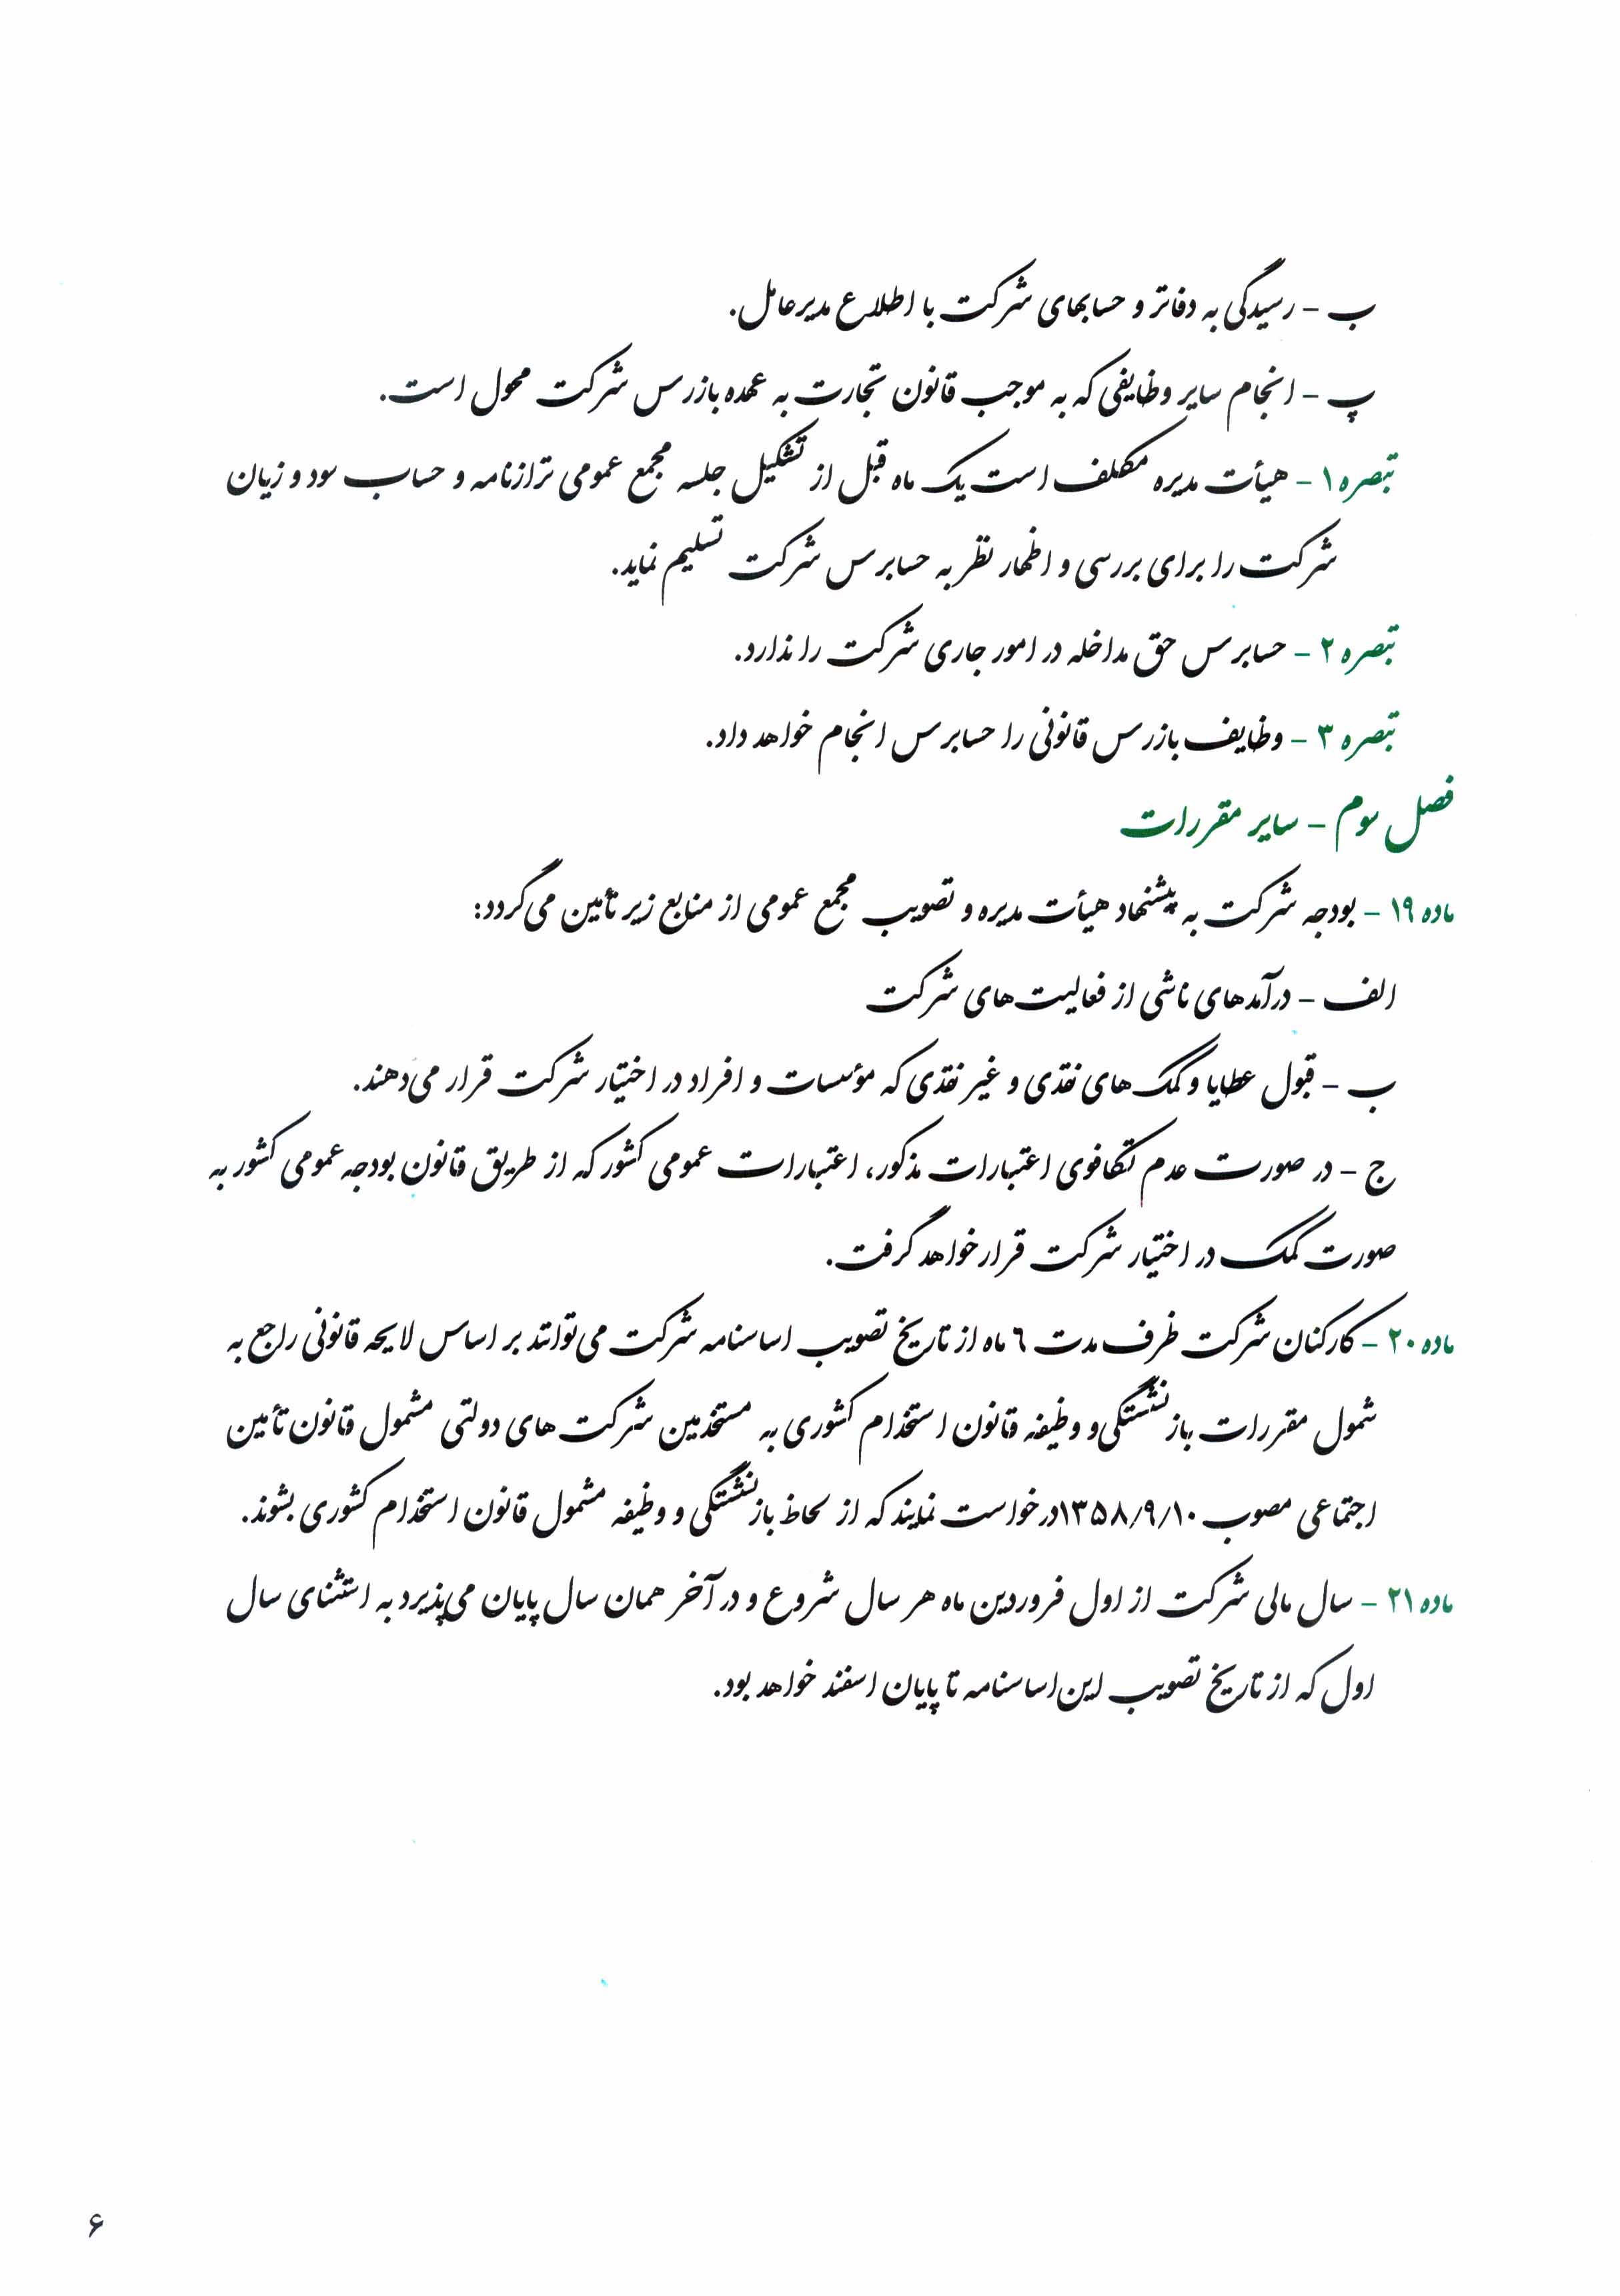 ب - رسیدگی به دفاتر و حسابهای شرکت با اطلاع مدیرعامل.
پ - انجام سایر وظایفی که به موجب قانون تجارت به عهده بازرس شرکت محول است.
تبصره ۱ - هیأت مدیره مکلف است یک ماه قبل از تشکیل جلسه مجمع عمومی ترازنامه و حساب سود و زیان
شرکت را برای بررسی و اظهار نظر به حسابرس شرکت تسلیم نماید.
تبصره ۲ - حسابرس حق مداخله در امور جاری شرکت را ندارد.
تبصره ۳ - وظایف بازرس قانونی را حسابرس انجام خواهد داد.
فصل سوم - سایر مقررات
ماده ۱۹ - بودجه شرکت به پیشنهاد هیأت مدیره و تصویب مجمع عمومی از منابع زیر تأمین می‌گردد:
الف - درآمدهای ناشی از فعالیت‌های شرکت
ب - قبول عطایا و کمک‌های نقدی و غیر نقدی که مؤسسات و افراد در اختیار شرکت قرار می‌دهند.
ج - در صورت عدم تکافوی اعتبارات مذکور، اعتبارات عمومی کشور که از طریق قانون بودجه عمومی کشور به
صورت کمک در اختیار شرکت قرار خواهد گرفت.
ماده ۲۰ - کارکنان شرکت ظرف مدت ٦ ماه از تاریخ تصویب اساسنامه شرکت می‌توانند بر اساس لایحه قانونی راجع به
شمول مقررات بازنشستگی و وظیفه قانون استخدام کشوری به مستخدمین شرکت‌های دولتی مشمول قانون تأمین
اجتماعی مصوب ۱۳۵۸/۹/۱۰ درخواست نمایند که از لحاظ بازنشستگی و وظیفه مشمول قانون استخدام کشوری بشوند.
ماده ۲۱ - سال مالی شرکت از اول فروردین ماه هر سال شروع و در آخر همان سال پایان می‌پذیرد به استثنای سال
اول که از تاریخ تصویب این اساسنامه تا پایان اسفند خواهد بود.
۶